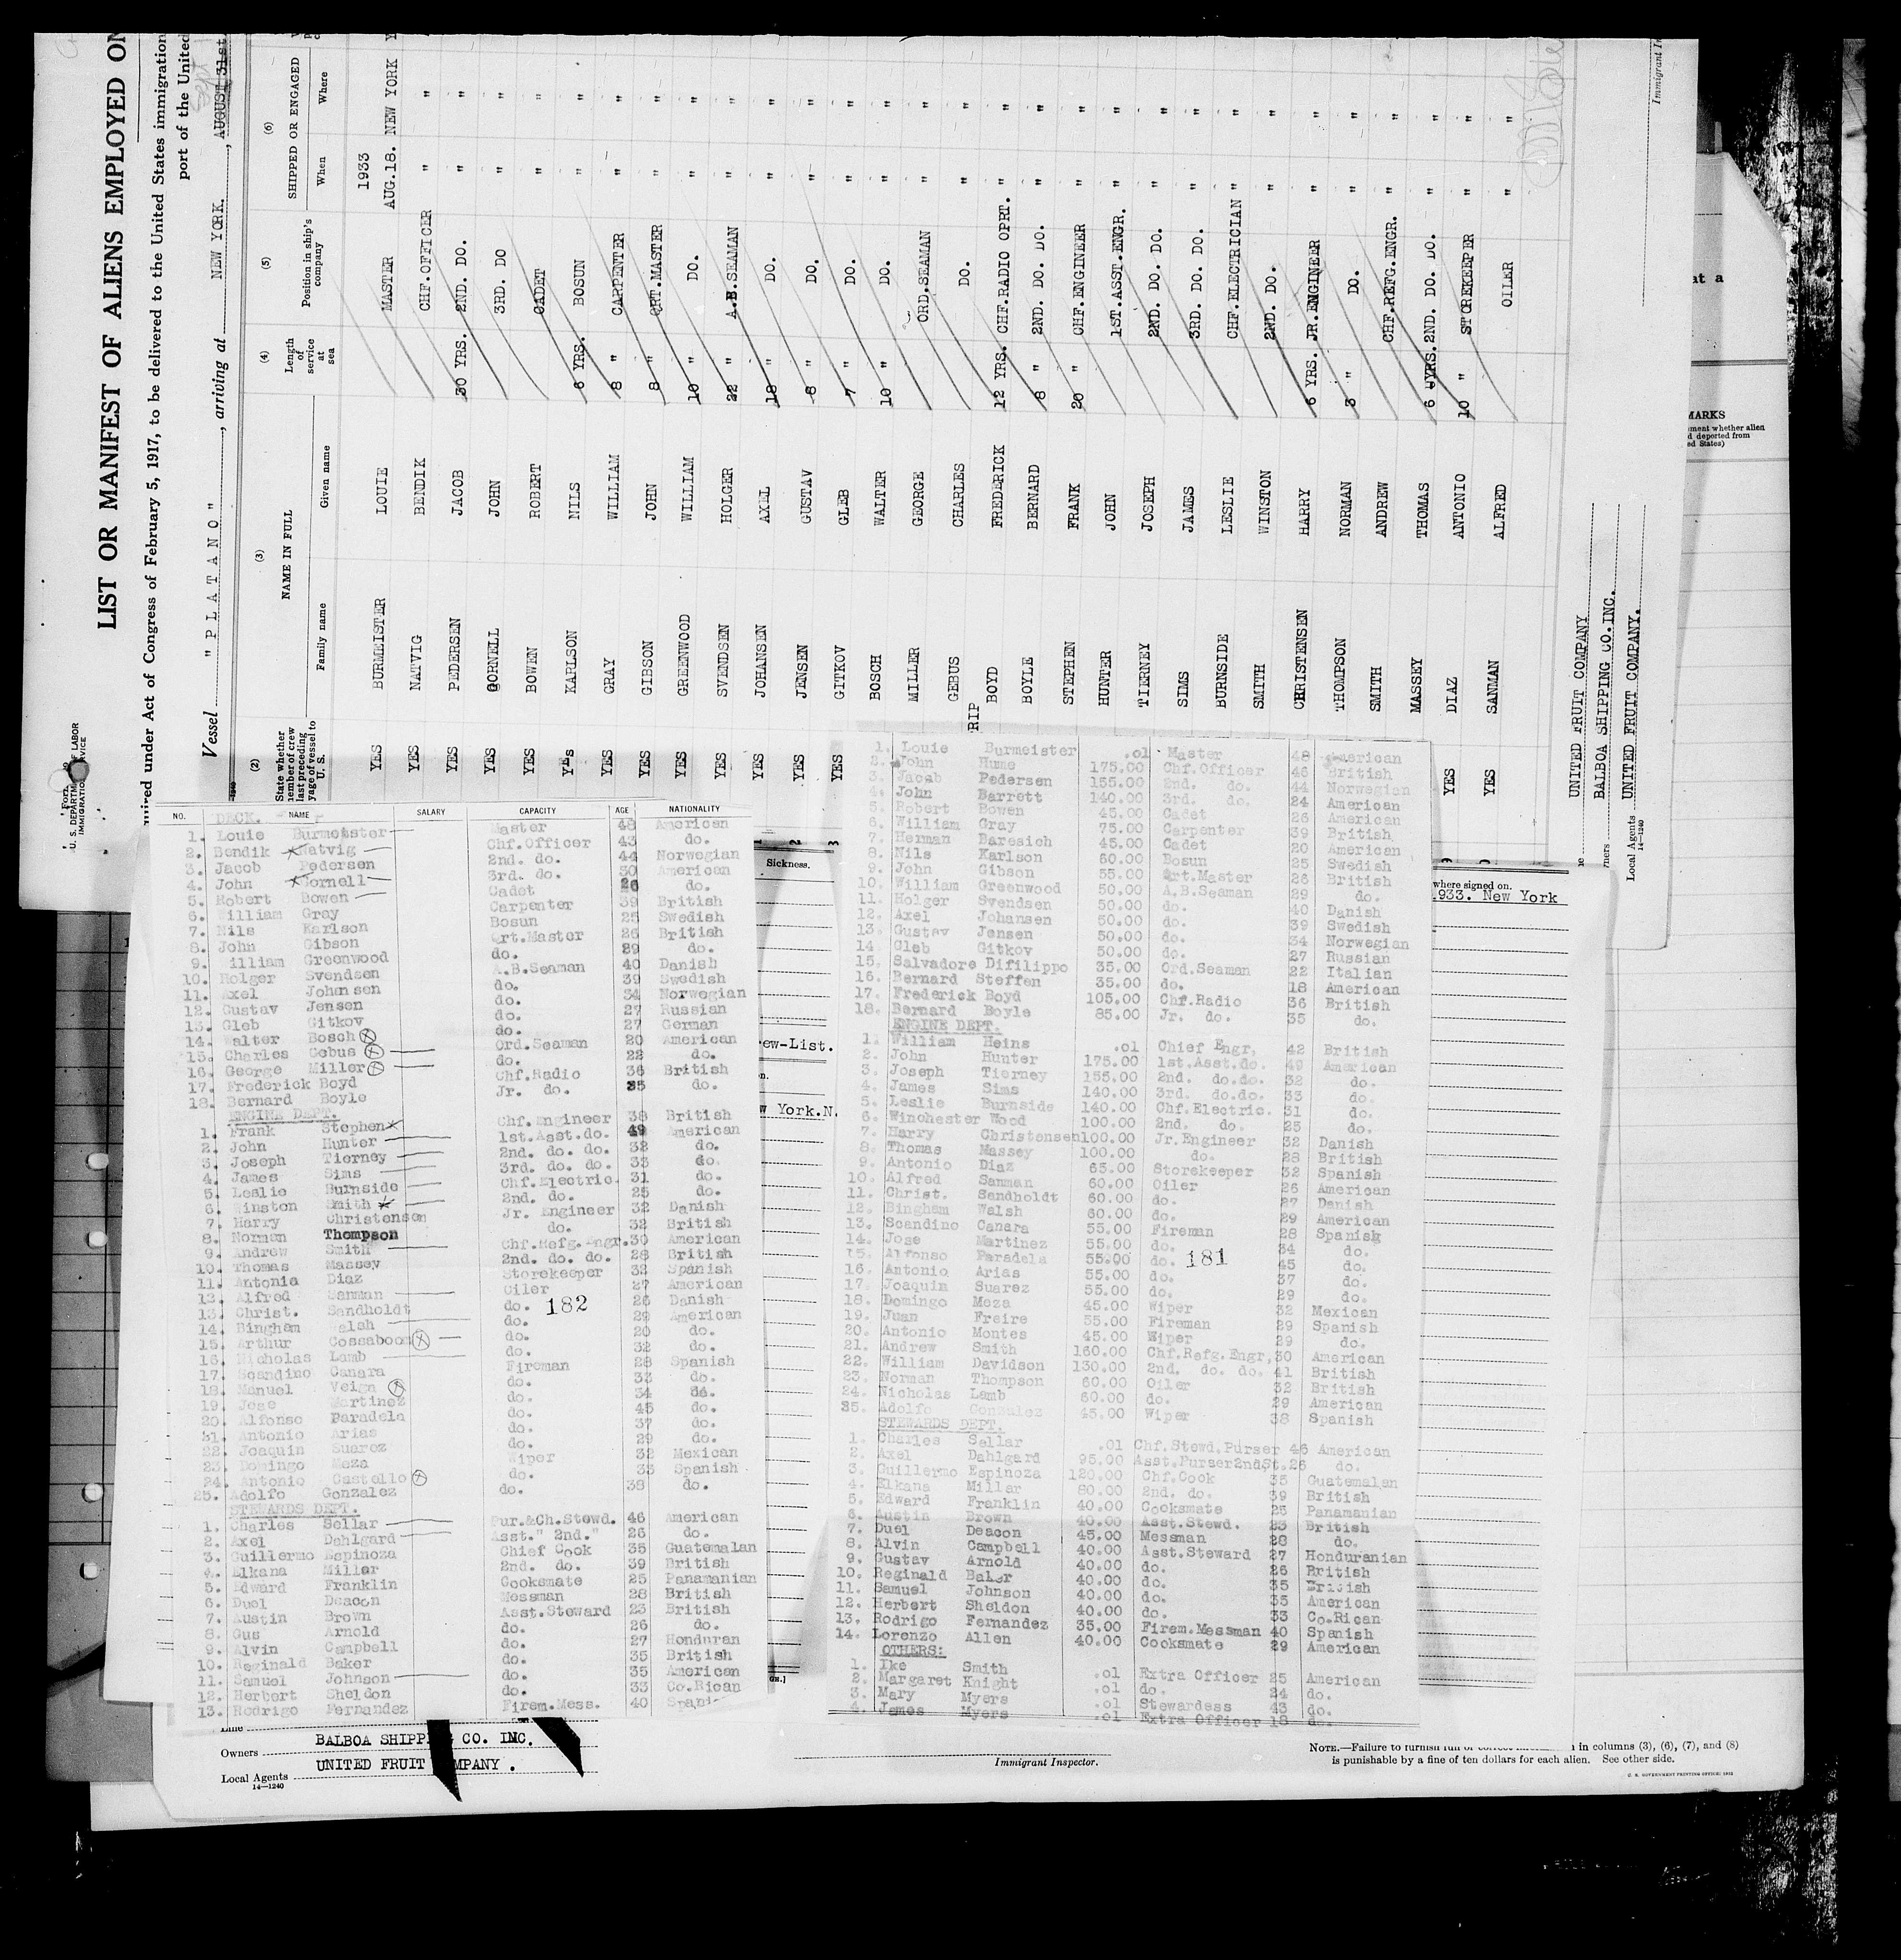 LIST OR MANIFEST OF ALIENS EMPLOYED ON
uired under Act of Congress of February 5, 1917, to be delivered to the United States immigration
port of the United
Vessel "PLATANO", arriving at NEW YORK, AUGUST 31st.
U. S. DEPARTMENT OF LABOR
IMMIGRATION SERVICE
(2) (3) (4) (5) (6)
NAME IN FULL
SHIPPED OR ENGAGED
Family name Given name
Length of service at sea
Position in ship's company
When Where
1933
YES BURMEISTER LOUIE MASTER AUG.18. NEW YORK
YES NATVIG BENDIK CHF.OFFICER " "
YES PEDERSEN JACOB 30 YRS. 2ND. DO. " "
YES GORNELL JOHN 3RD. DO " "
YES BOWEN ROBERT CADET " "
YES KARLSON NILS 6 YRS. BOSUN " "
YES GRAY WILLIAM 8 " CARPENTER " "
YES GIBSON JOHN 8 " QRT.MASTER " "
YES GREENWOOD WILLIAM 10 " DO. " "
YES SVENDSEN HOLGER 22 " A.B.SEAMAN " "
YES JOHANSEN AXEL 18 " DO. " "
YES JENSEN GUSTAV 8 " DO. " "
YES GITKOV GLEB 7 " DO. " "
BOSCH WALTER 10 " DO. " "
MILLER GEORGE ORD.SEAMAN " "
GEBUS CHARLES DO. " "
BOYD FREDERICK 12 YRS. CHF.RADIO OPRT. " "
BOYLE BERNARD 8 " 2ND. DO. DO. " "
STEPHEN FRANK 20 " CHF.ENGINEER " "
HUNTER JOHN 1ST.ASST.ENGR. " "
TIERNEY JOSEPH 2ND. DO. DO. " "
SIMS JAMES 3RD. DO. DO. " "
BURNSIDE LESLIE CHF.ELECTRICIAN " "
SMITH WINSTON 2ND. DO. " "
CHRISTENSEN HARRY 6 YRS. JR.ENGINER " "
THOMPSON NORMAN 3 " DO. " "
SMITH ANDREW CHF.REFG.ENGR. " "
MASSEY THOMAS 6 YRS. 2ND. DO. DO. " "
YES DIAZ ANTONIO 10 " STOREKEEPER " "
YES SANMAN ALFRED OILER " "
UNITED FRUIT COMPANY
BALBOA SHIPPING CO.INC.
Local Agents UNITED FRUIT COMPANY.
14—1240
NO. NAME SALARY CAPACITY AGE NATIONALITY
DECK.
1. Louie Burmeister Master 48 American
2. Bendik Natvig Chf.Officer 43 do.
3. Jacob Pedersen 2nd. do. 44 Norwegian
4. John Gornell 3rd. do. 30 American
5. Robert Bowen Cadet 26 do.
6. William Gray Carpenter 39 British
7. Nils Karlson Bosun 25 Swedish
8. John Gibson Qrt.Master 26 British
9. illiam Greenwood do. 29 do.
10. Holger Svendsen A.B.Seaman 40 Danish
11. Axel Johansen do. 39 Swedish
12. Gustav Jensen do. 34 Norwegian
13. Gleb Gitkov do. 27 Russian
14. Walter Bosch do. 27 German
15. Charles Gebus Ord.Seaman 20 American
16. George Miller do. 22 do.
17. Frederick Boyd Chf.Radio 36 British
18. Bernard Boyle Jr. do. 35 do.
ENGINE DEPT.
1. Frank Stephen Chf.Engineer 38 British
2. John Hunter 1st.Asst.do. 49 American
3. Joseph Tierney 2nd. do. do. 32 do.
4. James Sims 3rd. do. do. 33 do.
5. Leslie Burnside Chf.Electric. 31 do.
6. Winston Smith 2nd. do. 25 do.
7. Harry Christensen Jr. Engineer 32 Danish
8. Norman Thompson do. 32 British
9. Andrew Smith Chf.Refg.Engr. 30 American
10. Thomas Massey 2nd. do. do. 28 British
11. Antonio Diaz Storekeeper 32 Spanish
13. Alfred Sanman Oiler 27 American
13. Christ. Sandholdt do. 26 Danish
14. Bingham Walsh do. 29 American
15. Arthur Cossaboom do. 20 do.
16. Nicholas Lamb do. 32 do.
17. Scandino Canara Fireman 28 Spanish
18. Manuel Veiga do. 33 do.
19. Jose Martinez do. 34 do.
20. Alfonso Paradela do. 45 do.
21. Antonio Arias do. 37 do.
22. Joaquin Suarez do. 29 do.
23. Domingo Meza Wiper 32 Mexican
24. Antonio Castello do. 33 Spanish
25. Adolfo Gonzalez do. 38 do.
182
STEWARDS DEPT.
1. Charles Sellar Pur.&Ch.Stewd. 46 American
2. Axel Dahlgard Asst." 2nd." 26 do.
3. Guillermo Espinoza Chief Cook 35 Guatemalan
4. Elkana Millar 2nd. do. 39 British
5. Edward Franklin Cooksmate 25 Panamanian
6. Duel Deacon Messman 28 British
7. Austin Brown Asst.Steward 23 British
8. Gus Arnold do. 26 do.
9. Alvin Campbell do. 27 Honduran
10. Reginald Baker do. 35 British
11. Samuel Johnson do. 35 American
12. Herbert Sheldon do. 33 Co.Rican
13. Rodrigo Fernandez Firem.Mess. 40
RIP
1. Louie Burmeister .01 Master 48 American
2. John Hume 175.00 Chf.Officer 46 British
3. Jacob Pedersen 155.00 2nd. do. 44 Norwegian
4. John Barrett 140.00 3rd. do. 24 American
5. Robert Bowen 45.00 Cadet 26 American
6. William Gray 75.00 Carpenter 39 British
7. Herman Baresich 45.00 Cadet 20 American
8. Nils Karlson 60.00 Bosun 25 Swedish
9. John Gibson 55.00 Qrt.Master 26 British
10. William Greenwood 50.00 A.B.Seaman 29 do.
11. Holger Svendsen 50.00 do. 40 Danish
12. Axel Johansen 50.00 do. 39 Swedish
13. Gustav Jensen 50.00 do. 34 Norwegian
14 Gleb Gitkov 50.00 do. 27 Russian
15. Salvadore Difilippo 35.00 Ord.Seaman 22 Italian
16. Bernard Steffen 35.00 do. 18 American
17. Frederick Boyd 105.00 Chf.Radio 36 British
18. Bernard Boyle 85.00 Jr. do. 35 do.
ENGINE DEPT.
1. William Heins .01 Chief Engr, 42 British
2. John Hunter 175.00 1st.Asst.do. 49 American
3. Joseph Tierney 155.00 2nd. do.do. 32 do.
4. James Sims 140.00 3rd. do.do. 33 do.
5. Leslie Burnside 140.00 Chf.Electric. 31 do.
6. Winchester Wood 100.00 2nd. do. 25 do.
7. Harry Christensen 100.00 Jr.Engineer 32 Danish
8. Thomas Massey 100.00 do. 28 British
9. Antonio Diaz 65.00 Storekeeper 32 Spanish
10. Alfred Sanman 60.00 Oiler 26 American
11. Christ. Sandholdt 60.00 do. 27 Danish
12. Bingham Walsh 60.00 do. 29 American
13. Scandino Canara 55.00 Fireman 28 Spanish
14. Jose Martinez 55.00 do. 34 do.
15. Alfonso Paradela 55.00 do. 45 do.
16. Antonio Arias 55.00 do. 37 do.
17. Joaquin Suarez 55.00 do. 29 do.
18. Domingo Meza 45.00 Wiper 32 Mexican
19. Juan Freire 55.00 Fireman 29 Spanish
20. Antonio Montes 45.00 Wiper 29 do.
21. Andrew Smith 160.00 Chf.Refg.Engr, 30 American
22. William Davidson 130.00 2nd. do. do. 41 British
23. Norman Thompson 60.00 Oiler 32 British
24. Nicholas Lamb 60.00 do. 29 American
25. Adolfo Gonzalez 45.00 Wiper 38 Spanish
181
STEWARDS DEPT.
1. Charles Sellar .01 Chf.Stewd.Purser 46 American
2. Axel Dahlgard 95.00 Asst.Purser2ndSt. 26 do.
3. Guillermo Espinoza 120.00 Chf.Cook 35 Guatemalan
4. Elkana Millar 80.00 2nd. do. 39 British
5. Edward Franklin 40.00 Cooksmate 25 Panamanian
6. Austin Brown 40.00 Asst.Stewd. 23 British
7. Duel Deacon 45.00 Messman 28 do.
8. Alvin Campbell 40.00 Asst.Steward 27 Honduranian
9. Gustav Arnold 40.00 do. 26 British
10. Reginald Baker 40.00 do. 35 British
11. Samuel Johnson 40.00 do. 35 American
12. Herbert Sheldon 40.00 do. 33 Co.Rican
13. Rodrigo Fernandez 35.00 Firem.Messman 40 Spanish
14. Lorenzo Allen 40.00 Cooksmate 29 American
OTHERS:
1. Ike Smith .01 Extra Officer 25 American
2. Margaret Knight .01 do. 24 do.
3. Mary Myers .01 Stewardess 43 do.
4. James Myers .01 Extra Officer 18 do.
Sickness.
ew-List.
w York.N.
where signed on.
1933. New York
MARKS
Owners BALBOA SHIPPING CO. INC.
Local Agents UNITED FRUIT COMPANY.
14—1240
Immigrant Inspector.
NOTE.—Failure to furnish in columns (3), (6), (7), and (8)
is punishable by a fine of ten dollars for each alien. See other side.